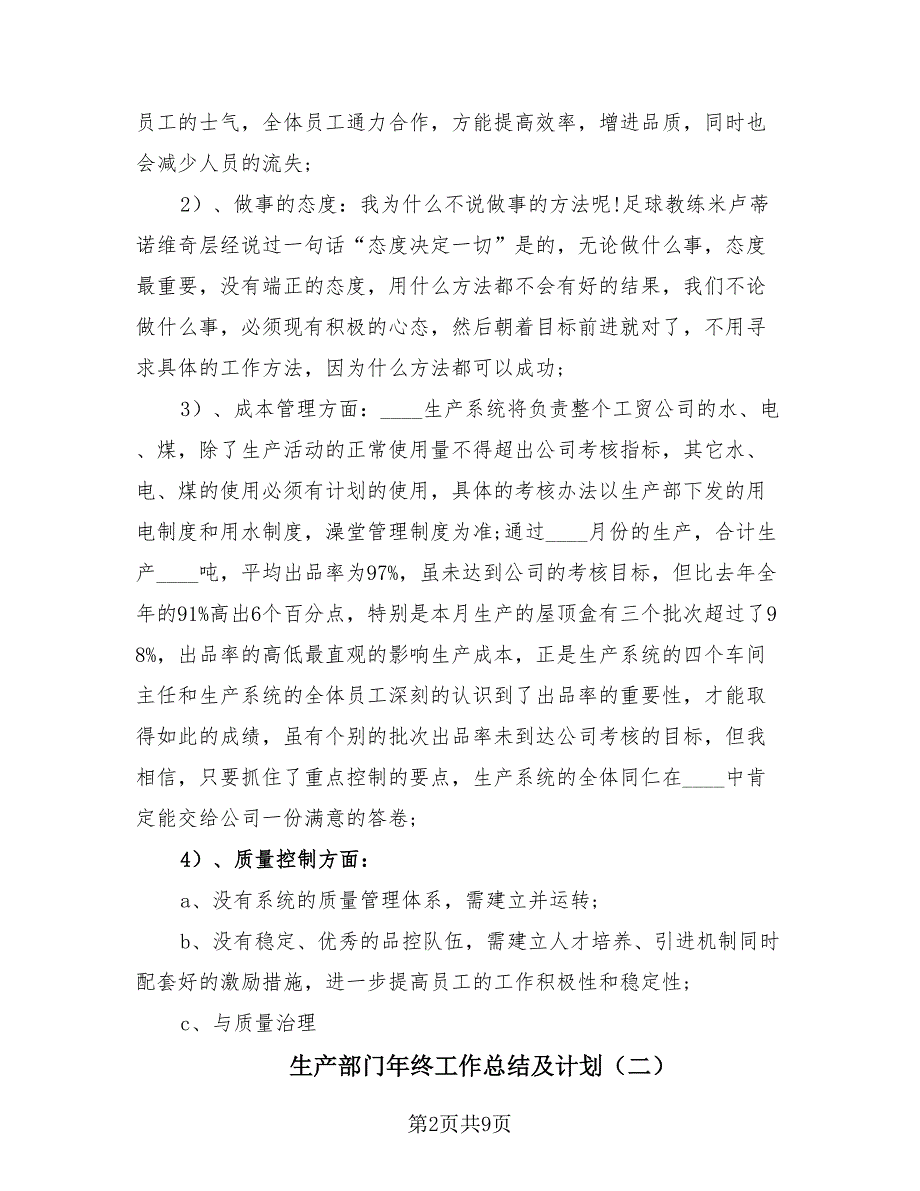 员工的士气，全体员工通力合作，方能提高效率，增进品质，同时也
会减少人员的流失;
2）、做事的态度：我为什么不说做事的方法呢!足球教练米卢蒂
诺维奇层经说过一句话“态度决定一切”是的，无论做什么事，态度
最重要，没有端正的态度，用什么方法都不会有好的结果，我们不论
做什么事，必须现有积极的心态，然后朝着目标前进就对了，不用寻
求具体的工作方法，因为什么方法都可以成功;
3）、成本管理方面：____生产系统将负责整个工贸公司的水、电
、煤，除了生产活动的正常使用量不得超出公司考核指标，其它水、
电、煤的使用必须有计划的使用，具体的考核办法以生产部下发的用
电制度和用水制度，澡堂管理制度为准;通过____月份的生产，合计生
产____吨，平均出品率为97%，虽未达到公司的考核目标，但比去年全
年的91%高出6个百分点，特别是本月生产的屋顶盒有三个批次超过了9
8%，出品率的高低最直观的影响生产成本，正是生产系统的四个车间
主任和生产系统的全体员工深刻的认识到了出品率的重要性，才能取
得如此的成绩，虽有个别的批次出品率未到达公司考核的目标，但我
相信，只要抓住了重点控制的要点，生产系统的全体同仁在____中肯
定能交给公司一份满意的答卷;
4）、质量控制方面：
a、没有系统的质量管理体系，需建立并运转;
b、没有稳定、优秀的品控队伍，需建立人才培养、引进机制同时
配套好的激励措施，进一步提高员工的工作积极性和稳定性;
c、与质量治理
生产部门年终工作总结及计划（二）
第2页共9页